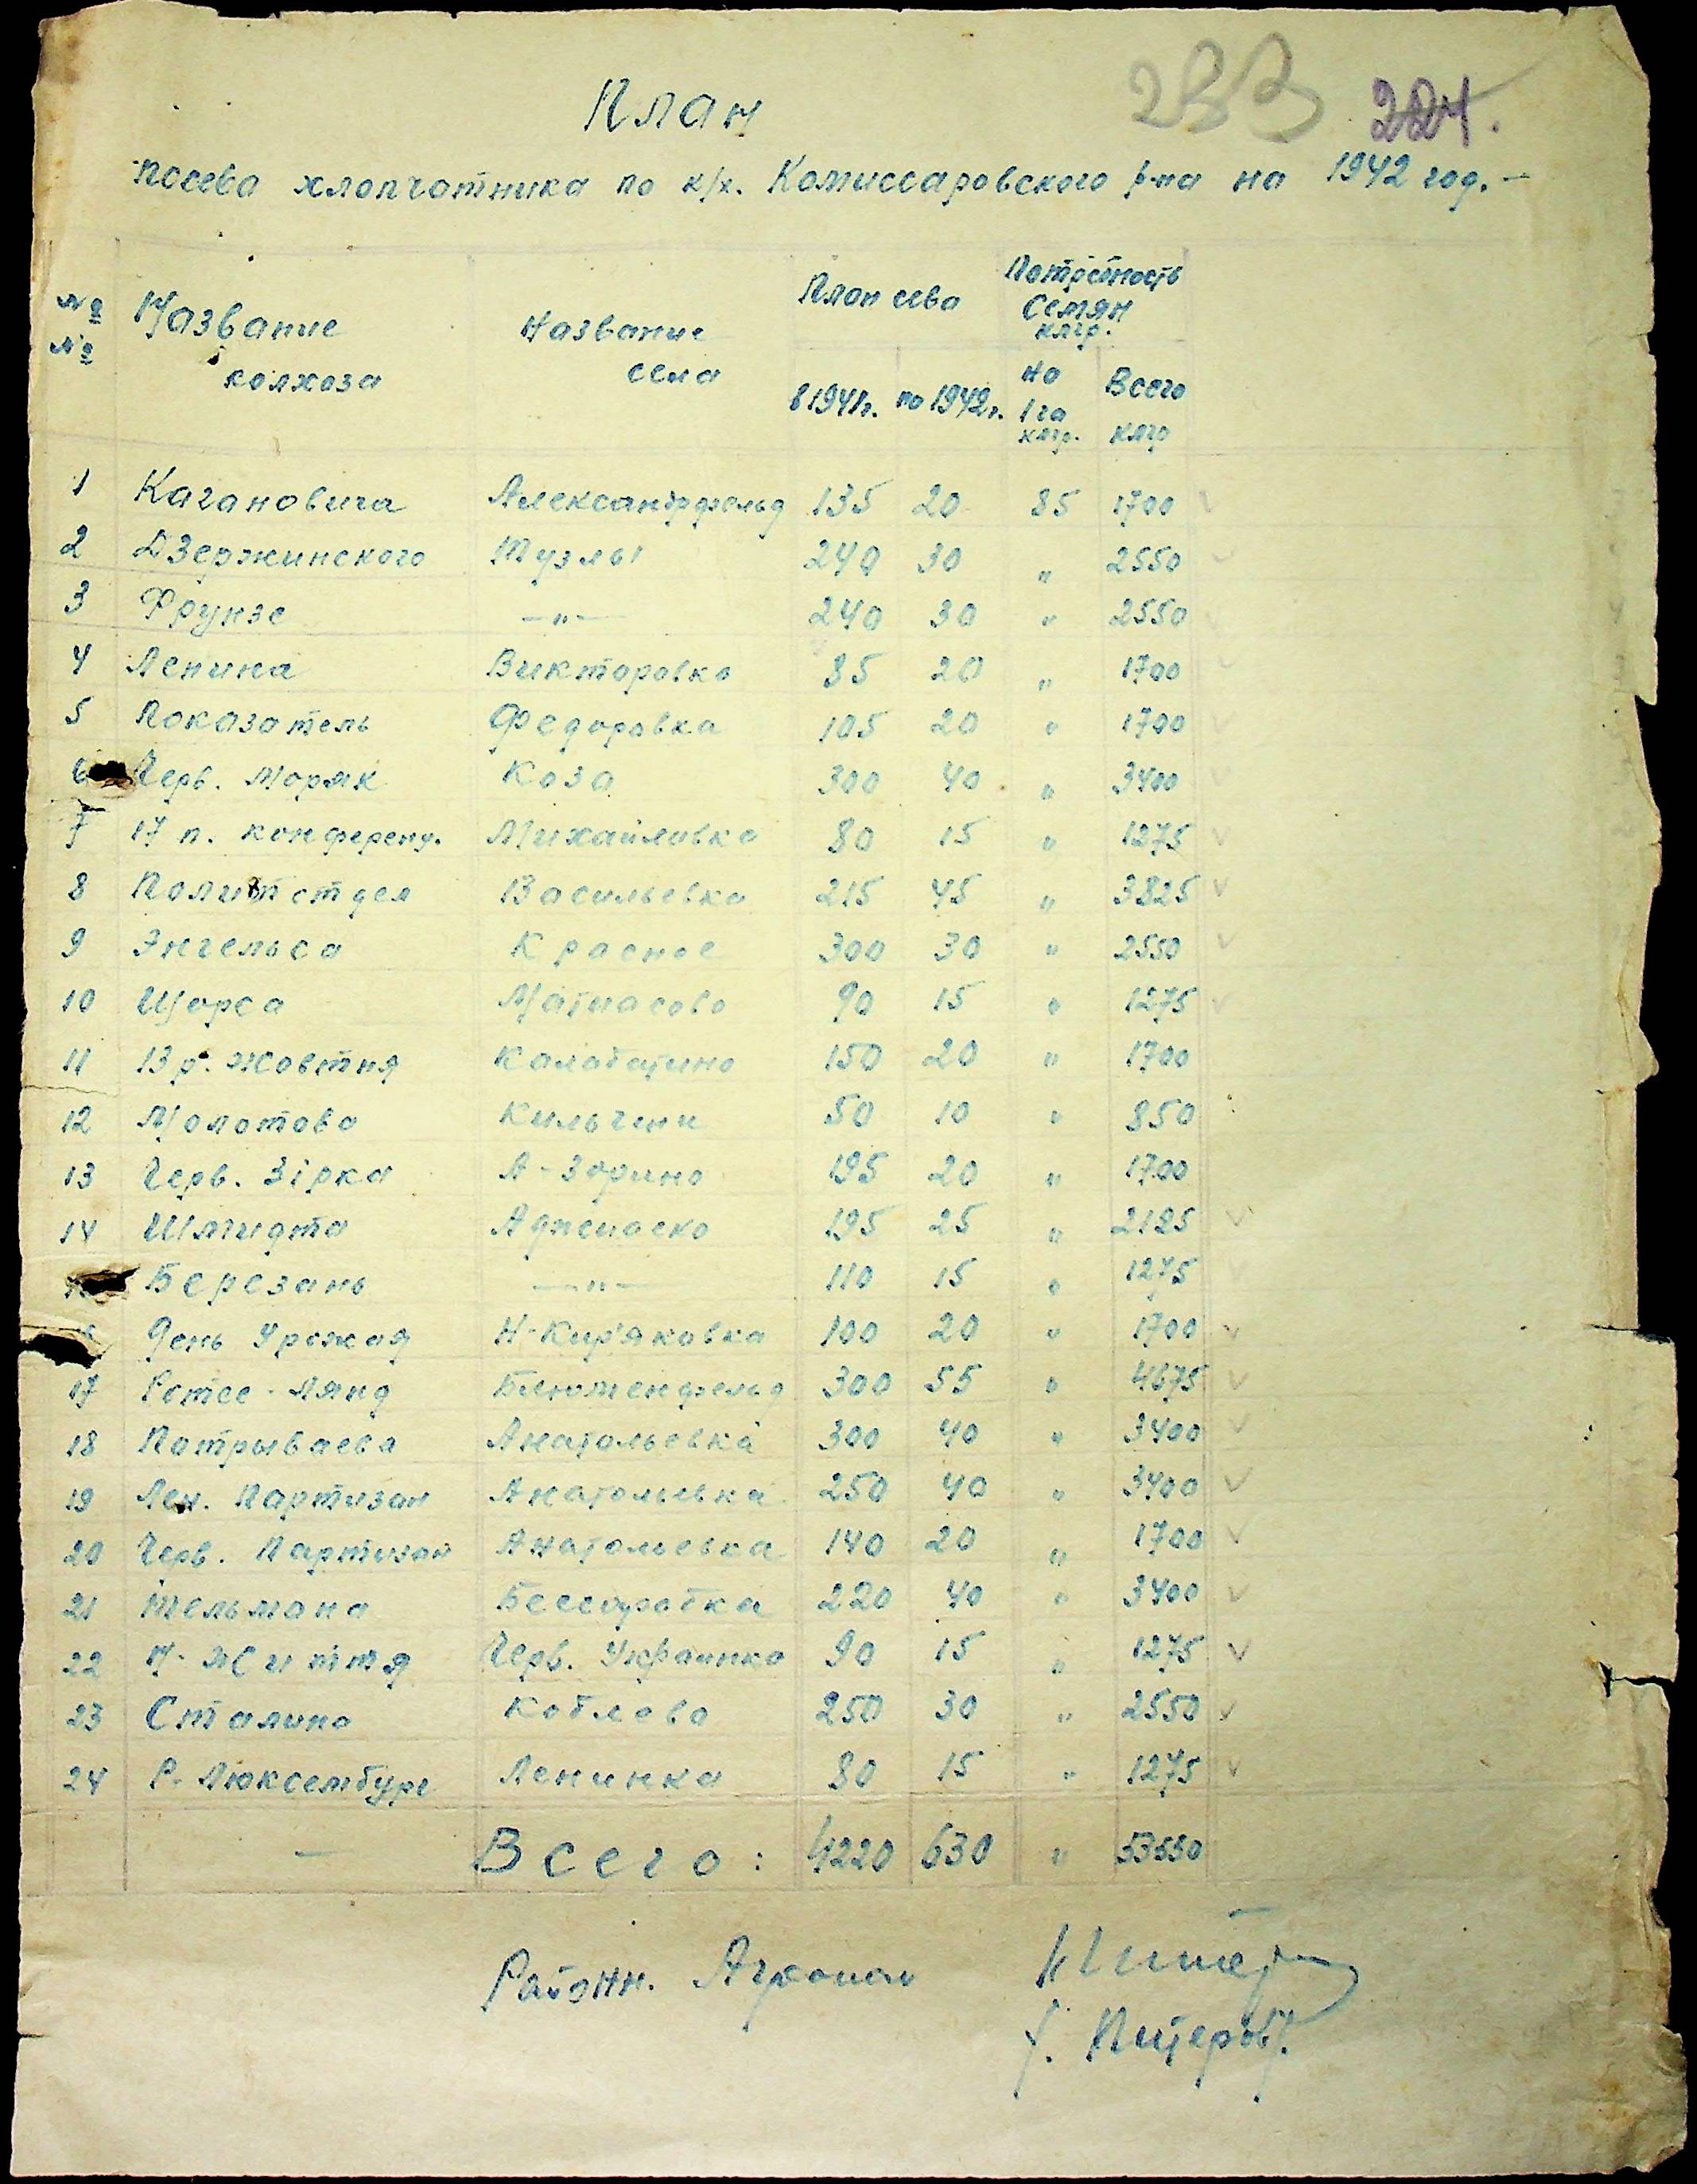 233 224.
План
посева хлопчотника по к/х. Комиссаровского р-на на 1942 год. —
№№ Название колхоза Название села План сева Потребность семян клгр.
в 1941г. по 1942г. на 1 га клгр. Всего клгр
1 Кагановича Александрфельд 135 20 85 1700
2 Дзержинского Тузлы 240 30 " 2550
3 Фрунзе —"— 240 30 " 2550
4 Ленина Викторовка 85 20 " 1700
5 Показатель Федоровка 105 20 " 1700
6 Черв. Моряк Коза 300 40 " 3400
7 17 п. конференц. Михайловка 80 15 " 1275
8 Политотдел Васильевка 215 45 " 3825
9 Энгельса Красное 300 30 " 2550
10 Щорса Матиасово 90 15 " 1275
11 13 р. Жовтня Калабатино 150 20 " 1700
12 Молотова Кильчени 50 10 " 850
13 Черв. Зірка А-Зорино 195 20 " 1700
14 Шмидта Аджиаско 195 25 " 2125
Березань —"— 110 15 " 1275
День Урожая Н-Кир'яковка 100 20 " 1700
17 Ротес-Лянд Блюменфельд 300 55 " 4675
18 Потрываева Анатольевка 300 40 " 3400
19 Лен. Партизан Анатольевка 250 40 " 3400
20 Черв. Партизан Анатольевка 140 20 " 1700
21 Тельмана Бессарабка 220 40 " 3400
22 Н-Життя Черв. Украинка 90 15 " 1275
23 Сталина Коблево 250 30 " 2550
24 Р. Люксембург Ленинка 80 15 " 1275
— Всего: 4220 630 " 53550
Районн. Агроном